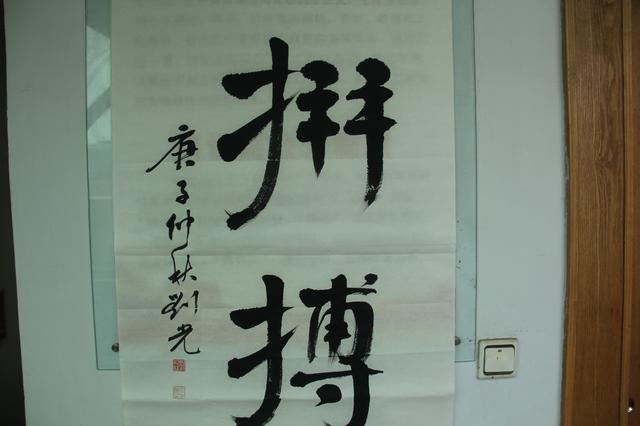 拼搏
庚子仲秋劉光